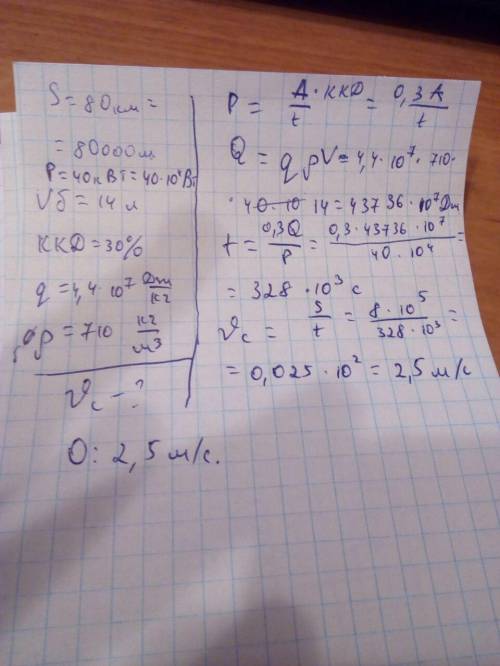 S = 80 км =
= 80000 м
P = 40 кВт = 40 · 10⁴ Вт
Vб = 14 л
ККД = 30%
q = 4,4 · 10⁷ Дж/кг
ρ = 710 кг/м³
𝜗c - ?
О: 2,5 м/с.
P = A · ККД / t = 0,3 A / t
Q = qρV = 4,4 · 10⁷ · 710 ·
· 14 = 43736 · 10⁷ Дж
t = 0,3Q / P = 0,3 · 43736 · 10⁷ / 40 · 10⁴ =
= 328 · 10³ с
𝜗c = S / t = 8 · 10⁵ / 328 · 10³ =
= 0,025 · 10² = 2,5 м/с